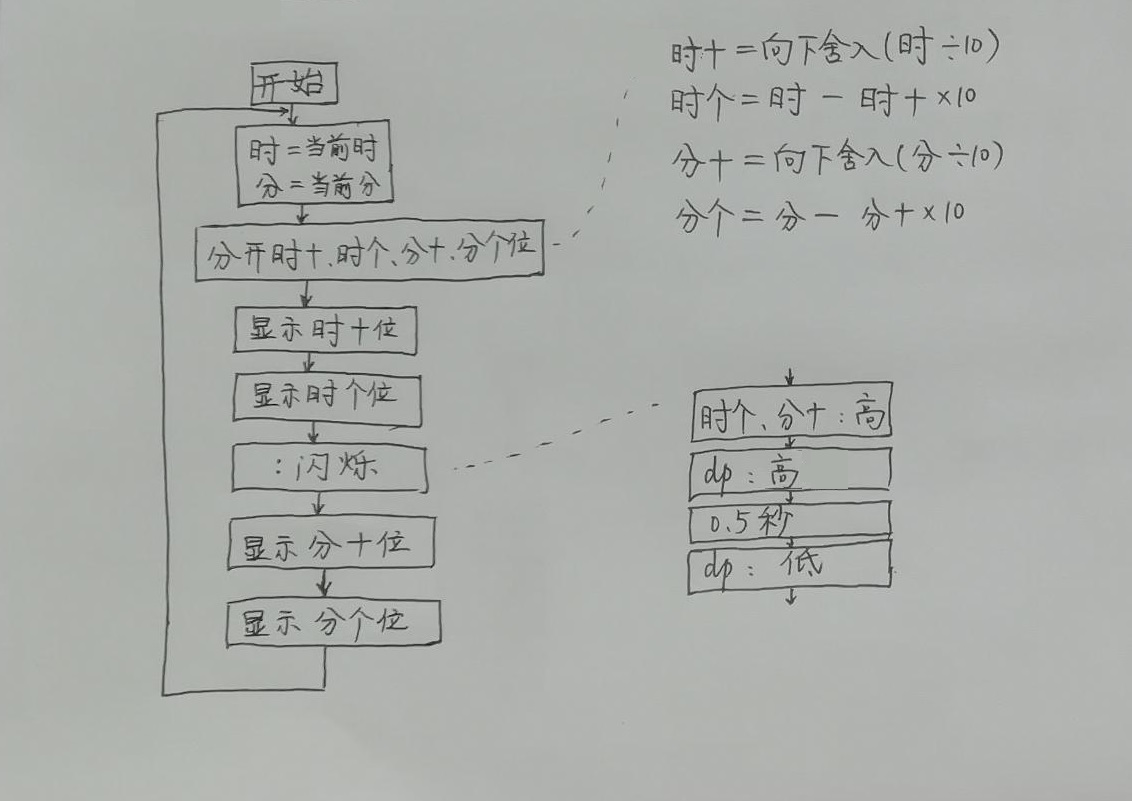 开始
时=当前时
分=当前分
分开时十、时个、分十、分个位
显示时十位
显示时个位
:闪烁
显示分十位
显示分个位
时十=向下舍入(时÷10)
时个=时-时十×10
分十=向下舍入(分÷10)
分个=分-分十×10
时个、分十:高
dp:高
0.5秒
dp:低